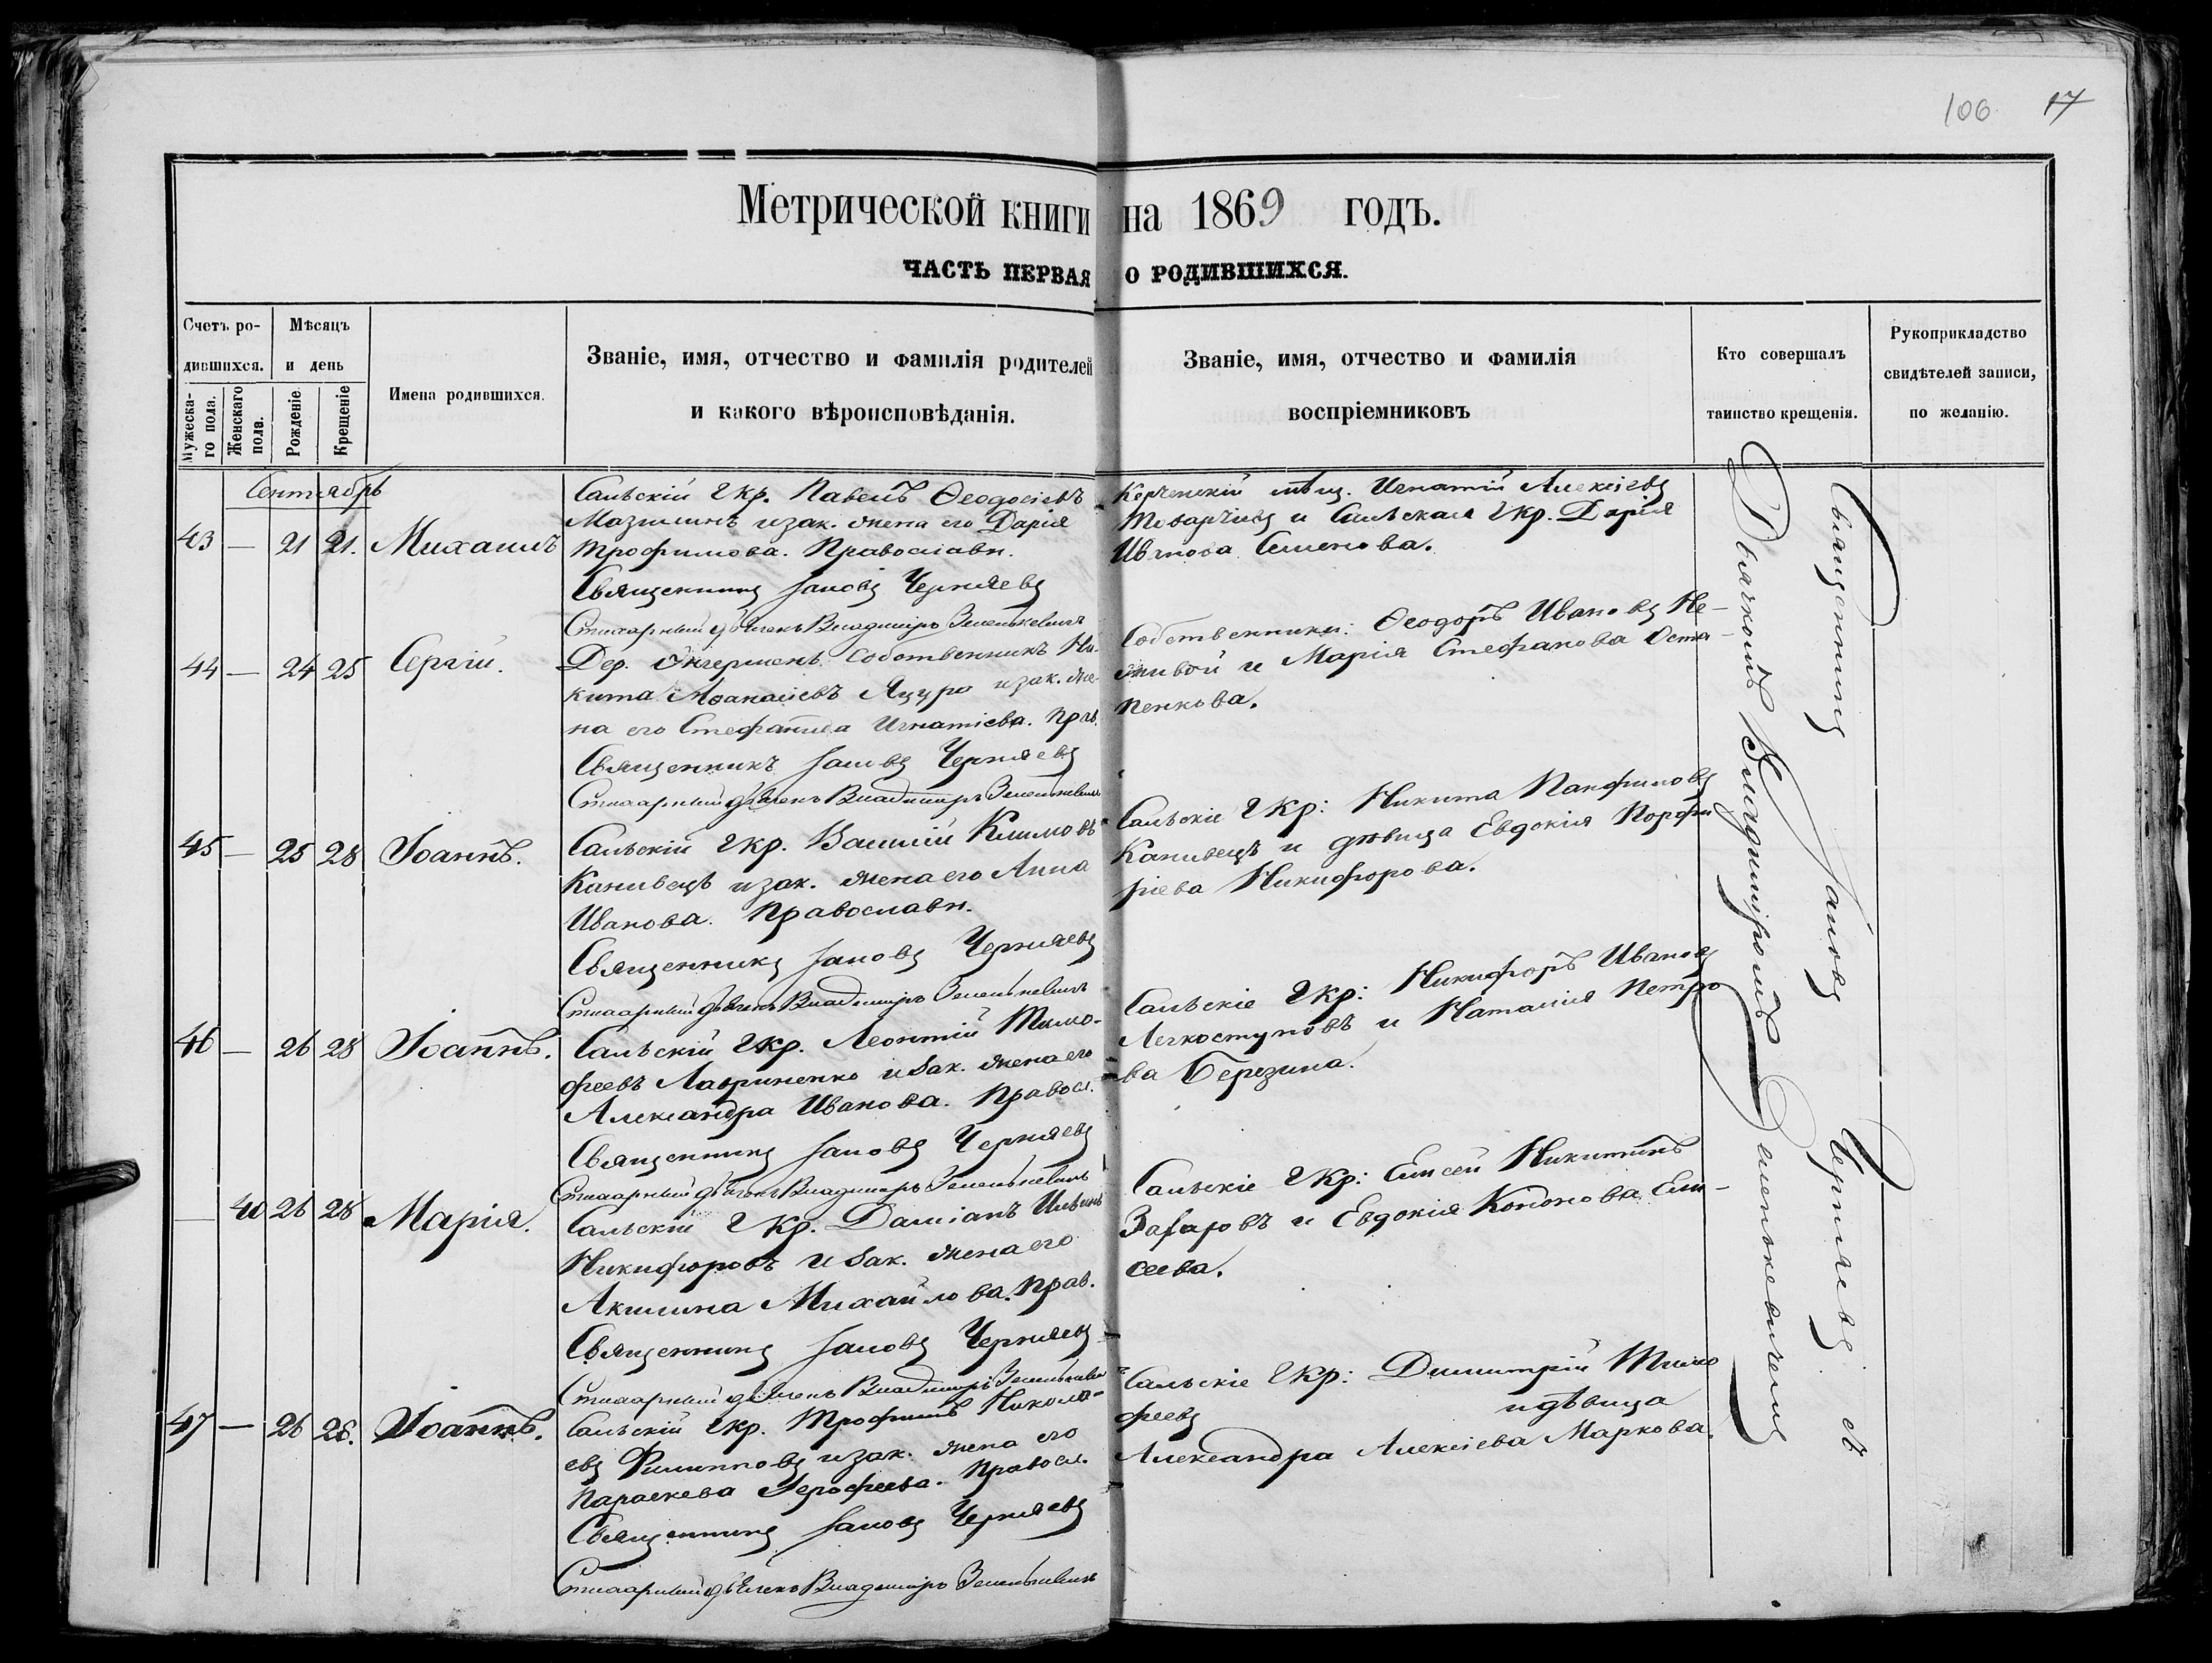 106 17
Метрической книги на 1869 годъ.
ЧАСТЬ ПЕРВАЯ О РОДИВШИХСЯ.
Счетъ ро-
дившихся.
Мужеска-
го пола.
Женскаго
пола.
Мѣсяцъ
и день
Рожденіе.
Крещеніе
Имена родившихся.
Званіе, имя, отчество и фамилія родителей
и какого вѣроисповѣданія.
Званіе, имя, отчество и фамилія
воспріемниковъ
Кто совершалъ
таинство крещенія.
Рукоприкладство
свидѣтелей записи,
по желанію.
Сентябрь
43 — 21 21. Михаилъ
Сальскій Гкр. Павелъ Ѳеодосіевъ
Мазилинъ и зак. жена его Дарія
Трофимова. Православн.
Священникъ Іаковъ Черняевъ
Стихарный дьячекъ Владиміръ Зеленькевичъ
Керченскій мѣщ. Игнатій Алексіевъ
Товарчивъ и Сальская Гкр. Дарія
Иванова Семенова.
44 — 24 25 Сергій.
Дер. Онгерменъ. Собственникъ Ни-
кита Аѳанасіевъ Яцуро и зак. же-
на его Стефанида Игнатіева. Прав.
Священникъ Іаковъ Черняевъ
Стихарный дьячекъ Владиміръ Зеленькевичъ
Собственники: Ѳеодоръ Ивановъ Не-
живой и Марія Стефанова Оста-
пенкова.
45 — 25 28 Іоаннъ.
Сальскій Гкр. Василій Климовъ
Канивецъ и зак. жена его Анна
Иванова. Православн.
Священникъ Іаковъ Черняевъ
Стихарный дьячекъ Владиміръ Зеленькевичъ
Сальскіе Гкр: Никита Панфиловъ
Канивецъ и дѣвица Евдокія Порфи
ріева Никифорова.
46 — 26 28 Іоаннъ.
Сальскій Гкр. Леонтій Тимо-
феевъ Лавриненко и зак. жена его
Александра Иванова. Правосл.
Священникъ Іаковъ Черняевъ
Стихарный дьячекъ Владиміръ Зеленькевичъ
Сальскіе Гкр: Никифоръ Ивановъ
Легкоступовъ и Наталія Петро
ва Березина.
— 40 26 28 Марія.
Сальскій Гкр. Даміанъ Ильинъ
Никифоровъ и зак. жена его
Акилина Михайлова. Прав.
Священникъ Іаковъ Черняевъ
Стихарный дьячекъ Владиміръ Зеленькевичъ
Сальскіе Гкр: Елисей Никитинъ
Захаровъ и Евдокія Кононова Ели-
сеева.
47 — 26 28. Іоаннъ.
Сальскій Гкр. Трофимъ Никола-
евъ Филипповъ и зак. жена его
Параскева Іерофеева. Правосл.
Священникъ Іаковъ Черняевъ
Стихарный дьячекъ Владиміръ Зеленькевичъ
Сальскіе Гкр: Димитрій Тимо
феевъ и дѣвица
Александра Алексіева Маркова.
Священникъ Іаковъ Черняевъ съ
Дьячкомъ Владиміромъ Зеленькевичемъ